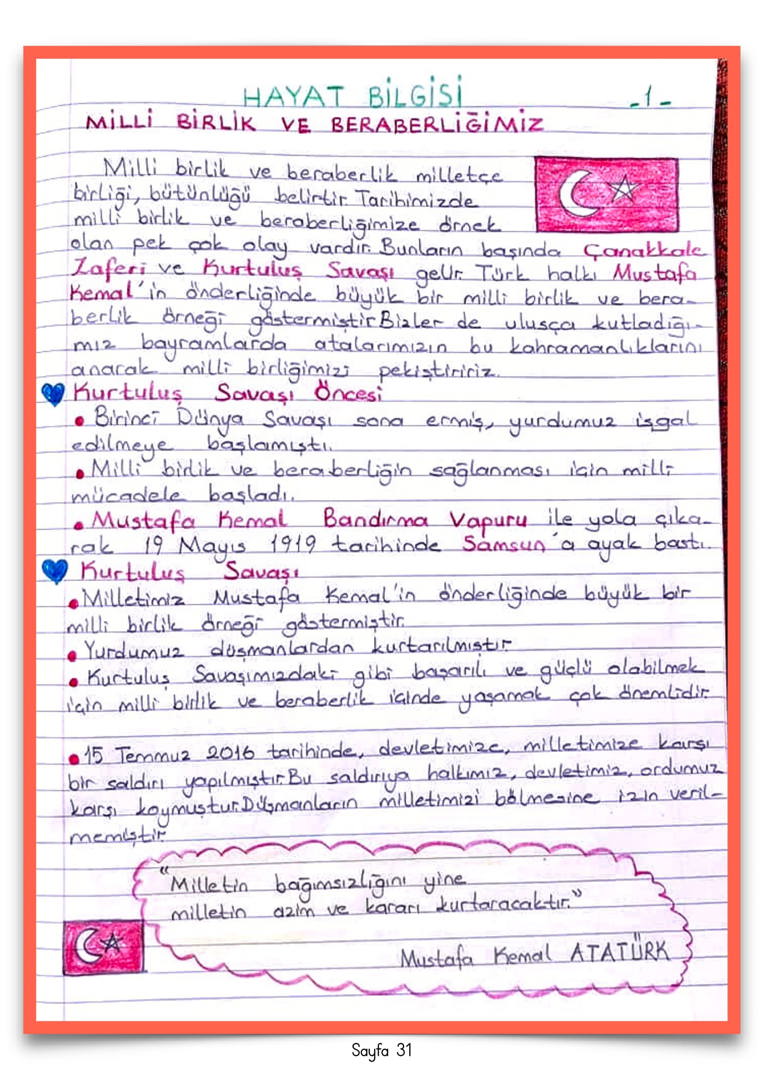 HAYAT BİLGİSİ -1-
MİLLİ BİRLİK VE BERABERLİĞİMİZ
Milli birlik ve beraberlik milletçe
birliği, bütünlüğü belirtir. Tarihimizde
milli birlik ve beraberliğimize örnek
olan pek çok olay vardır. Bunların başında Çanakkale
Zaferi ve Kurtuluş Savaşı gelir. Türk halkı Mustafa
Kemal'in önderliğinde büyük bir milli birlik ve bera-
berlik örneği göstermiştir. Bizler de ulusça kutladığı-
mız bayramlarda atalarımızın bu kahramanlıklarını
anarak milli birliğimizi pekiştiririz.
Kurtuluş Savaşı Öncesi
• Birinci Dünya Savaşı sona ermiş, yurdumuz işgal
edilmeye başlamıştı.
• Milli birlik ve beraberliğin sağlanması için milli
mücadele başladı.
• Mustafa Kemal Bandırma Vapuru ile yola çıka-
rak 19 Mayıs 1919 tarihinde Samsun'a ayak bastı.
Kurtuluş Savaşı
• Milletimiz Mustafa Kemal'in önderliğinde büyük bir
milli birlik örneği göstermiştir.
• Yurdumuz düşmanlardan kurtarılmıştır
• Kurtuluş Savaşımızdaki gibi başarılı ve güçlü olabilmek
için milli birlik ve beraberlik içinde yaşamak çok önemlidir.
• 15 Temmuz 2016 tarihinde, devletimize, milletimize karşı
bir saldırı yapılmıştır. Bu saldırıya halkımız, devletimiz, ordumuz
karşı koymuştur. Düşmanların milletimizi bölmesine izin veril-
memiştir.
"Milletin bağımsızlığını yine
milletin azim ve kararı kurtaracaktır."
Mustafa Kemal ATATÜRK
Sayfa 31